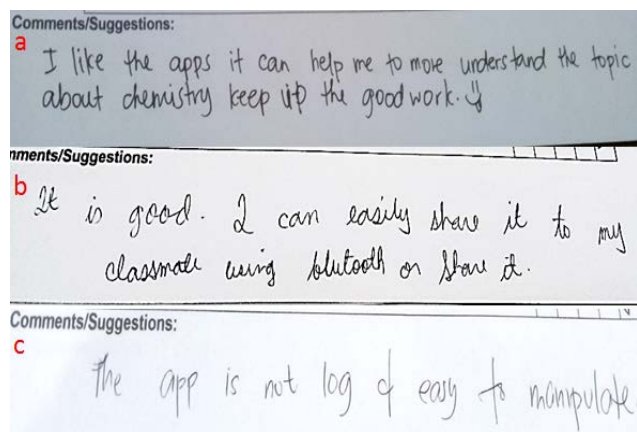 Comments/Suggestions:
a
I like the apps it can help me to more understand the topic
about chemistry keep up the good work.
nments/Suggestions:
b
It is good. I can easily share it to my
classmate using blutooth or Share it.
Comments/Suggestions:
c
The app is not log & easy to manipulate